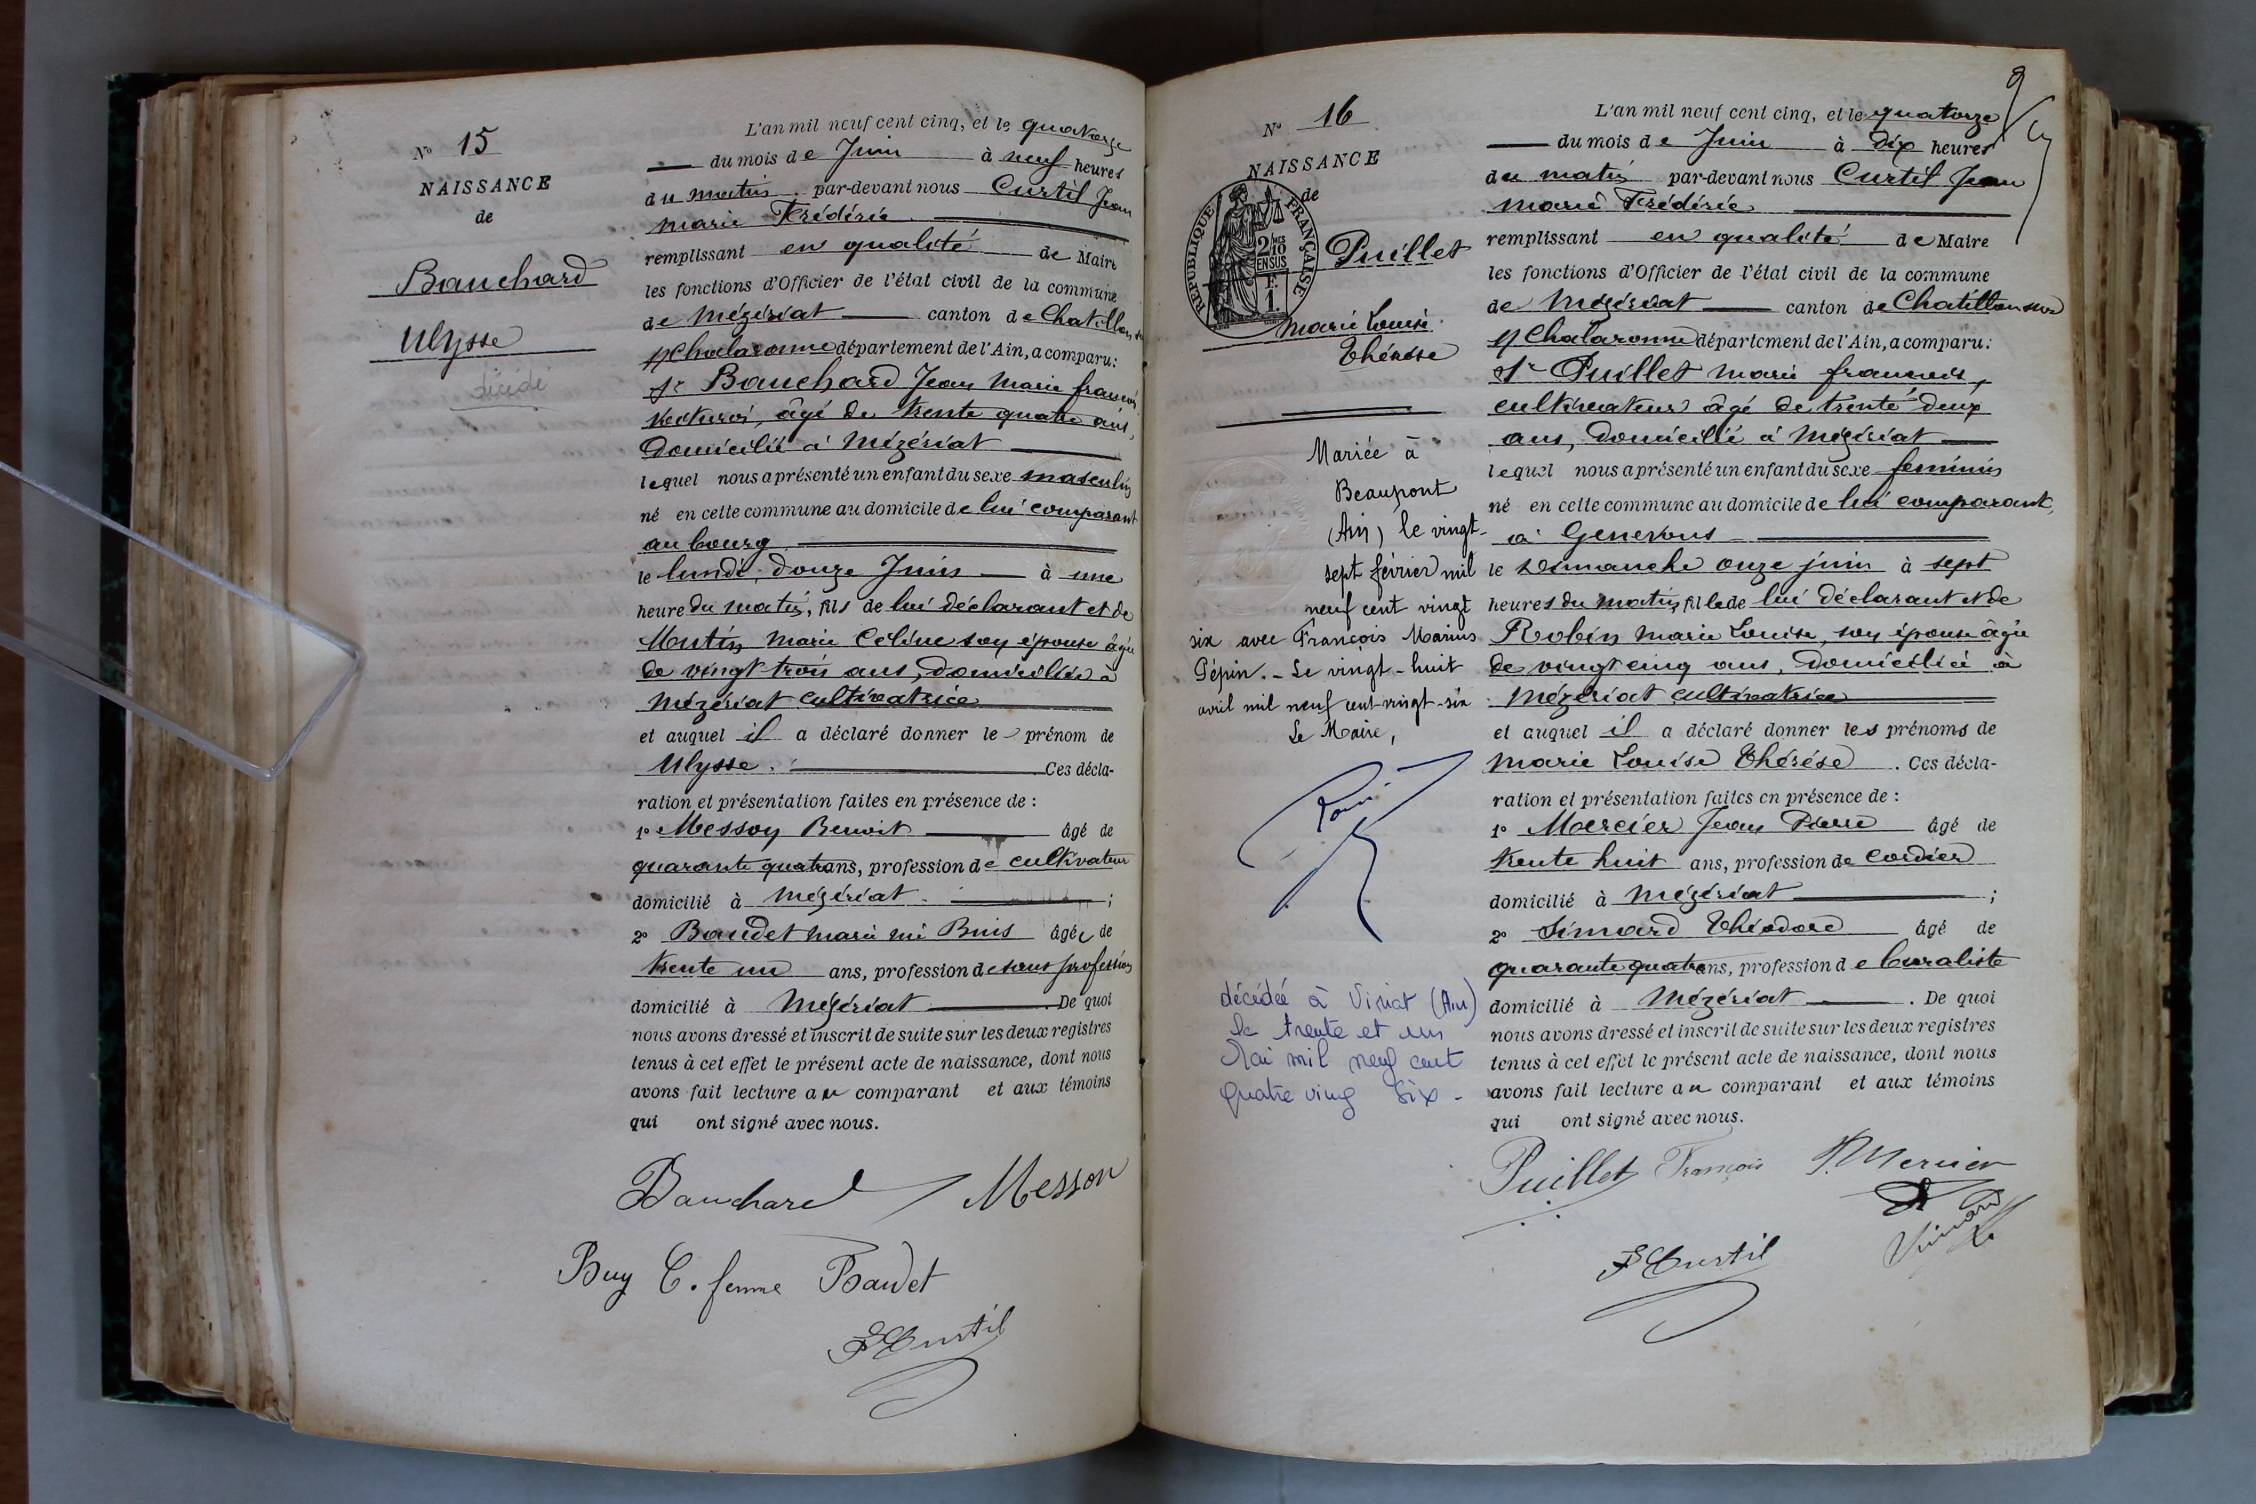 N° 15
NAISSANCE
de
Bauchard
Ulysse
décédé
L'an mil neuf cent cinq, et le quatorze
du mois de Juin à neuf heures
du matin par-devant nous Curtil Jean
Marie Frédéric
remplissant en qualité de Maire
les fonctions d'Officier de l'état civil de la commune
de Mézériat canton de Chatillon sur
Chalaronne département de l'Ain, a comparu:
Sr Bauchard Jean Marie françois
âgé de trente quatre ans,
Domicilié à Mézériat
lequel nous a présenté un enfant du sexe masculin
né en cette commune au domicile de lui comparant
au bourg
le lundi, douze Juin à une
heure du matin, fils de lui déclarant et de
Mutin Marie Céline son épouse âgée
de vingt trois ans, domiciliée à
Mézériat cultivatrice
et auquel il a déclaré donner le prénom de
Ulysse. Ces décla-
ration et présentation faites en présence de :
1° Messon Benoit âgé de
quarante quatre ans, profession de cultivateur
domicilié à Mézériat ;
2° Baudet Marie née Buis âgée de
trente un ans, profession de sans profession
domicilié à Mézériat. De quoi
nous avons dressé et inscrit de suite sur les deux registres
tenus à cet effet le présent acte de naissance, dont nous
avons fait lecture au comparant et aux témoins
qui ont signé avec nous.
Bauchard Messon
Buy C. femme Baudet
F Curtil
9
N° 16
NAISSANCE
de
RÉPUBLIQUE FRANÇAISE
2/10 EN SUS
F. 1.
Puillet
Marie Louise
Thérèse
Mariée à
Beaupont
(Ain) le vingt-
sept février mil
neuf cent vingt
six avec François Marius
Pépin. - Le vingt-huit
avril mil neuf cent vingt-six
Le Maire,
décédée à Viriat (Ain)
le trente et un
Mai mil neuf cent
quatre ving six -
L'an mil neuf cent cinq, et le quatorze
du mois de Juin à dix heures
du matin par-devant nous Curtil Jean
Marie Frédéric
remplissant en qualité de Maire
les fonctions d'Officier de l'état civil de la commune
de Mézériat canton de Chatillon sur
Chalaronne département de l'Ain, a comparu:
Sr Puillet Marie francois,
cultivateur âgé de trente deux
ans, domicilié à Mézériat
lequel nous a présenté un enfant du sexe feminin
né en cette commune au domicile de lui comparant,
à Genevons
le Dimanche onze juin à sept
heures du matin fille de lui déclarant et de
Robin Marie Louise, son épouse âgée
de vingt cinq ans, domiciliée à
Mézériat cultivatrice
et auquel il a déclaré donner les prénoms de
Marie Louise Thérèse. Ces décla-
ration et présentation faites en présence de :
1° Mercier Jean Pierre âgé de
trente huit ans, profession de cordier
domicilié à Mézériat ;
2° Simard Théodore âgé de
quarante quatre ans, profession de buraliste
domicilié à Mézériat. De quoi
nous avons dressé et inscrit de suite sur les deux registres
tenus à cet effet le présent acte de naissance, dont nous
avons fait lecture au comparant et aux témoins
qui ont signé avec nous.
Puillet François P. Mercier
Simard
F Curtil